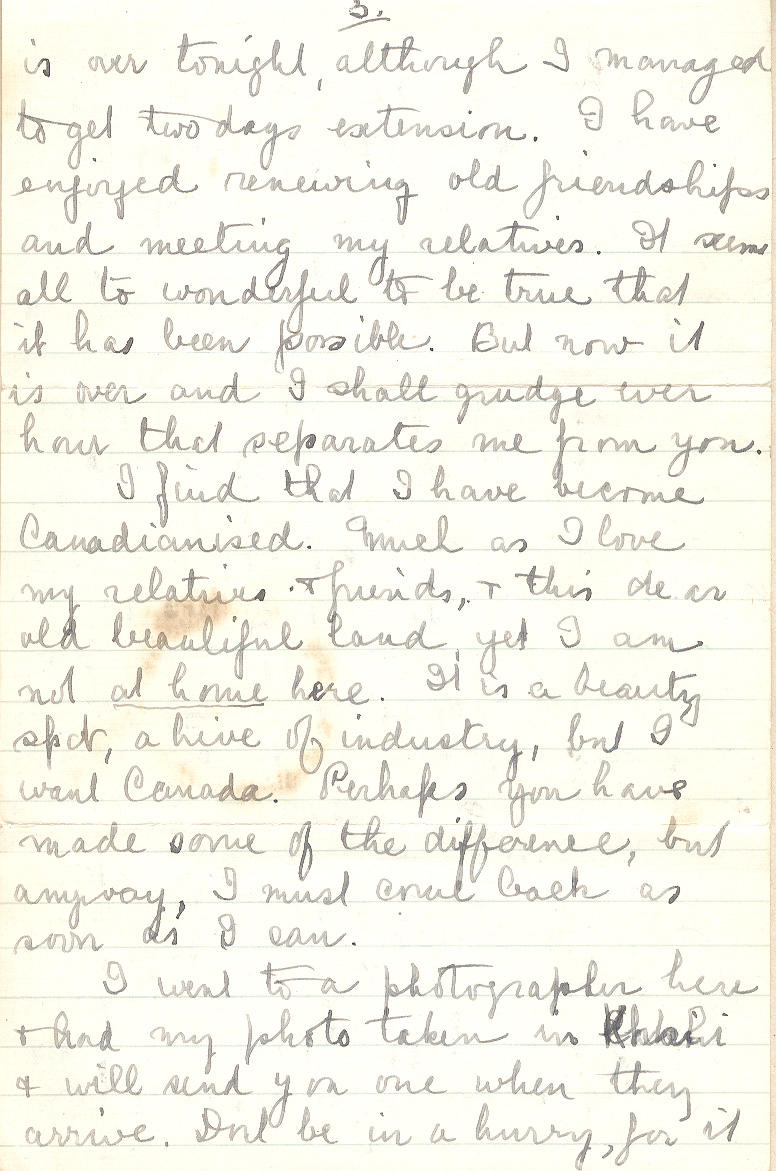 3.
is over tonight, although I managed
to get two days extension. I have
enjoyed renewing old friendships
and meeting my relatives. It seems
all to wonderful to be true that
it has been possible. But now it
is over and I shall grudge ever
hour that separates me from you.
I find that I have become
Canadianised. Much as I love
my relatives + friends, + this dear
old beautiful land, yet I am
not at home here. It is a beauty
spot, a hive of industry, but I
want Canada. Perhaps you have
made some of the difference, but
anyway, I must come back as
soon as I can.
I went to a photographer here
+ had my photo taken in Khaki
+ will send you one when they
arrive. Dont be in a hurry, for it